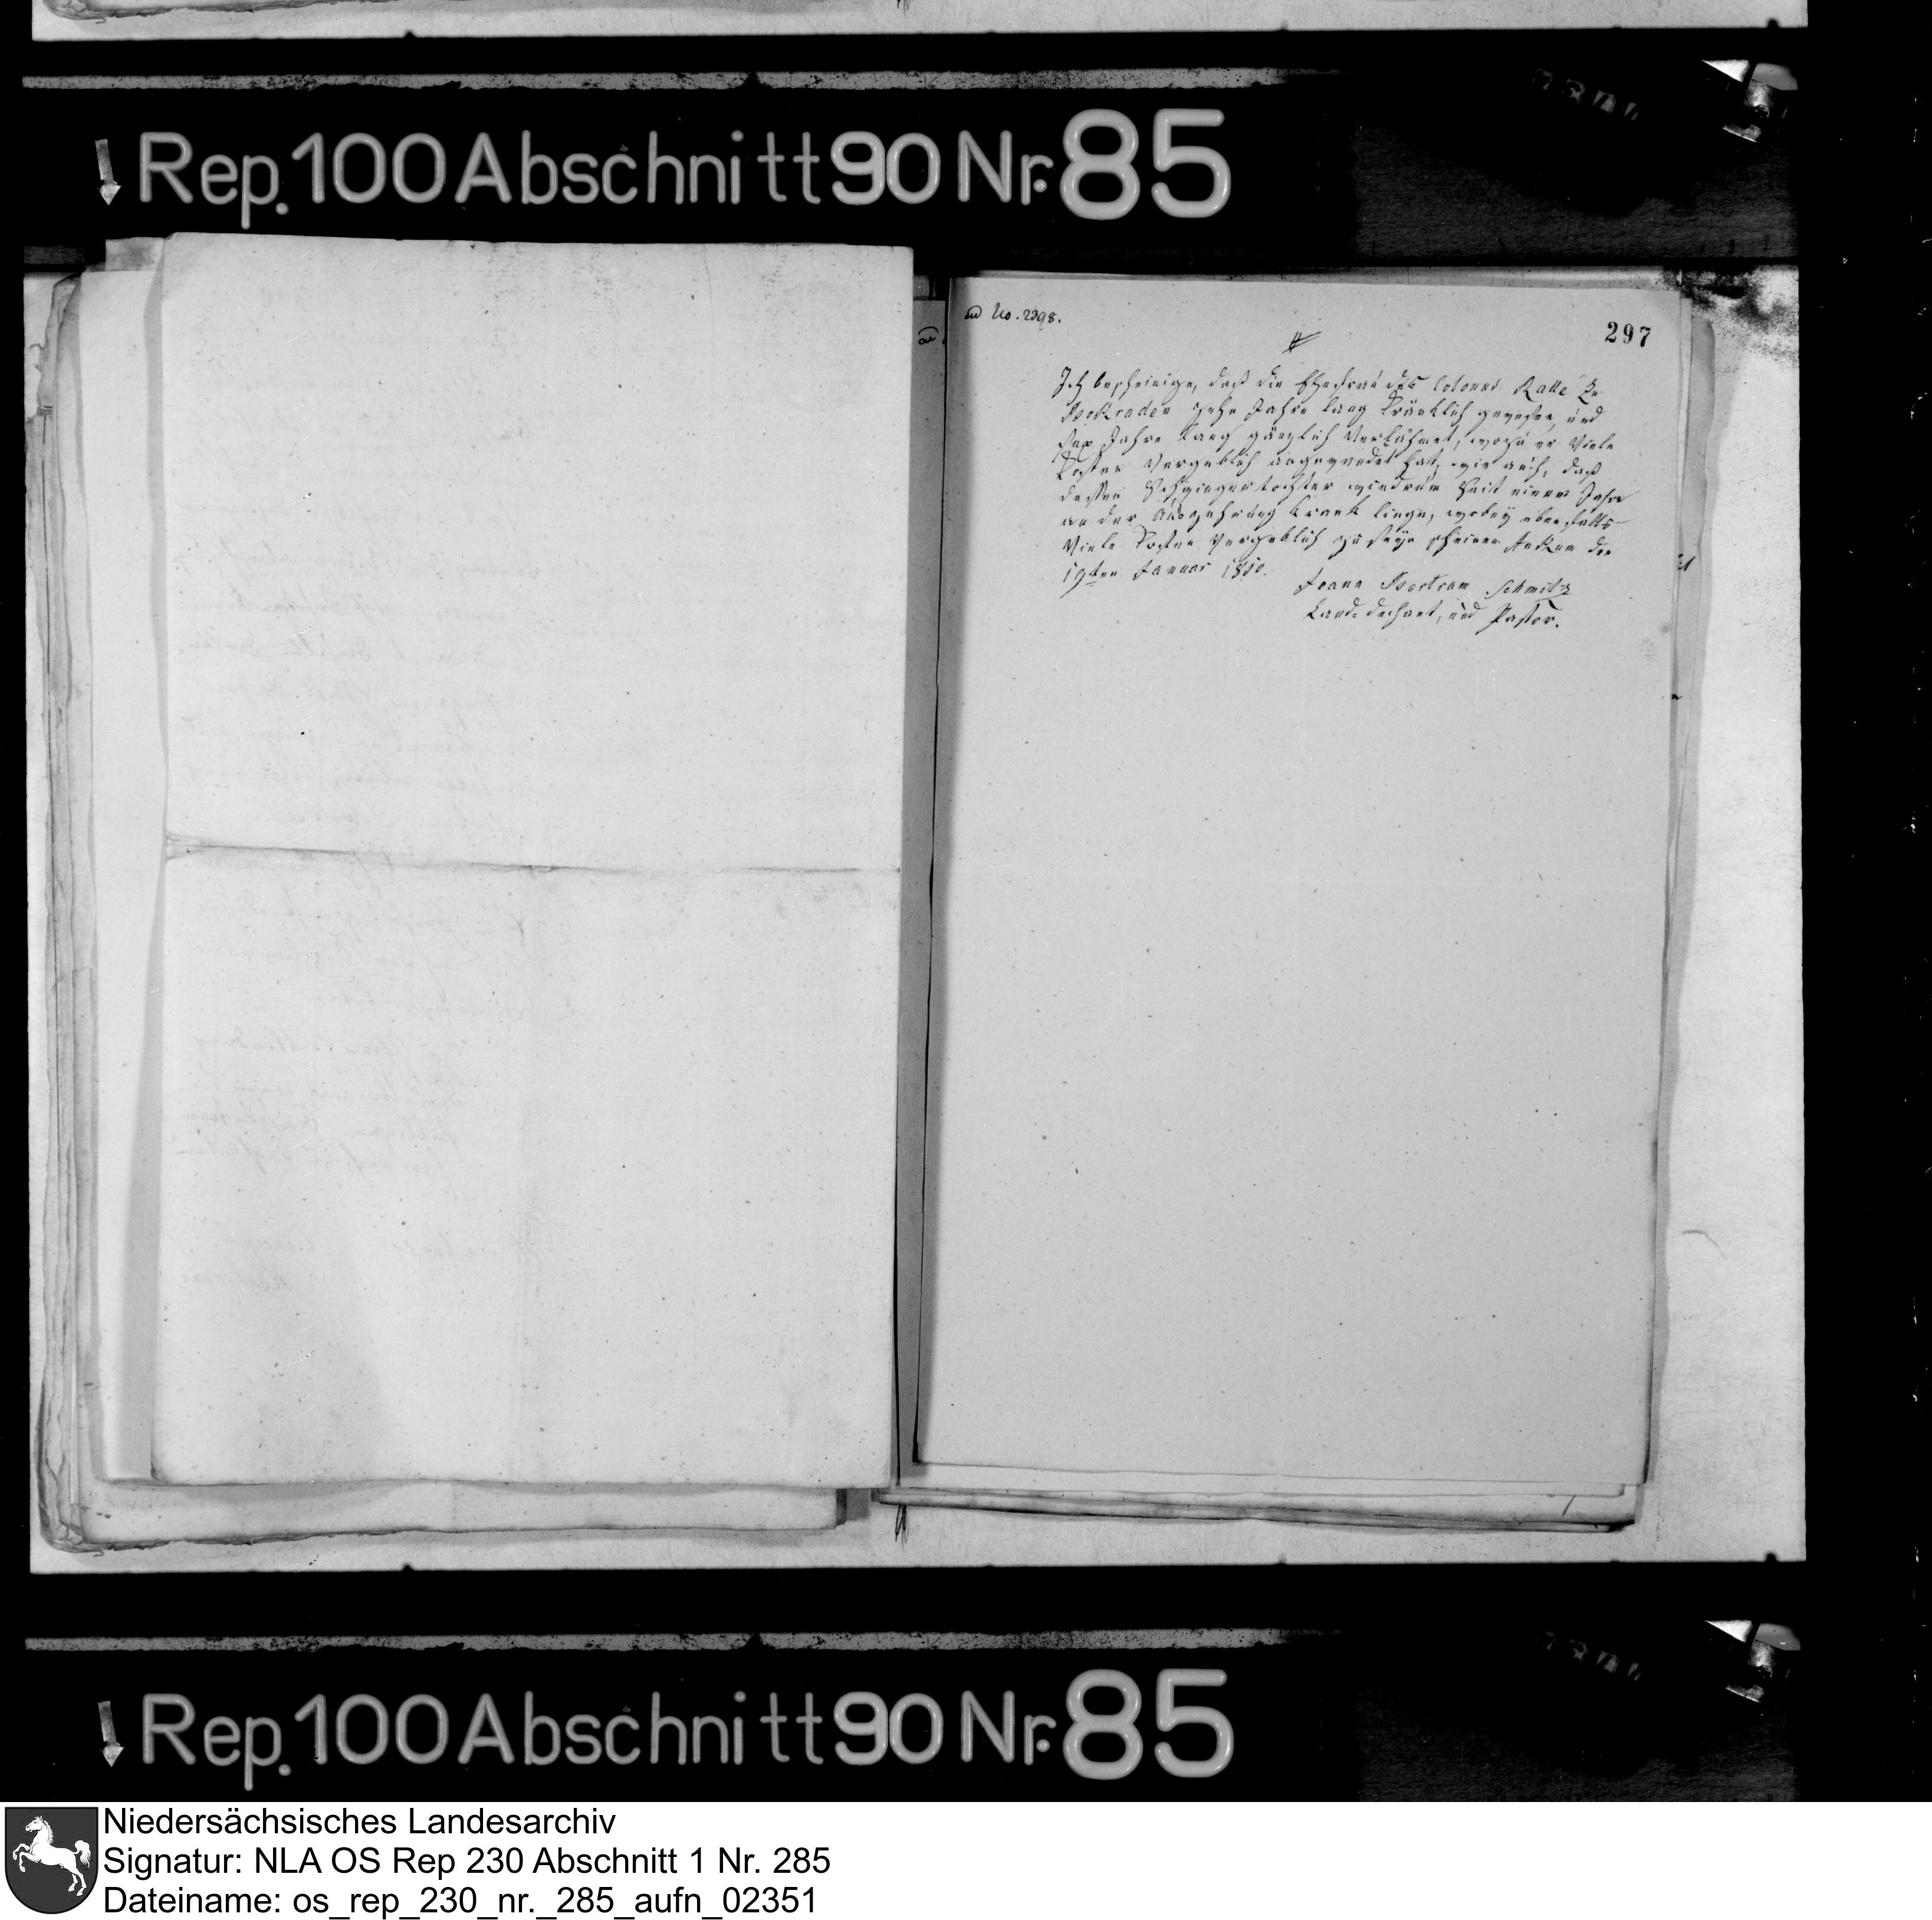 Rep. 100 Abschnitt 90 Nr. 85
ad No. 2398.
297
Ich bescheinige, daß die Ehefrau des Coloned Kalle Zu
Bockraden zehn Jahre lang kränklich gewesen, und
sex Jahre lang gänzlich Verlähmet, wozu er Viele
Kosten Vergeblich angewendet hatt, wie auch, daß
dessen Schwiegertochter wiedrum Seit einem Jahre
an der Auszehrung krank liege, wobey ebenfalls
Viele Kosten Vergeblich zu seyn scheinen Ankum den
19ten Januar 1810.
Joann Bertram Schmitz
Land-dechant, und Pastor.
Rep. 100 Abschnitt 90 Nr. 85
Niedersächsisches Landesarchiv
Signatur: NLA OS Rep 230 Abschnitt 1 Nr. 285
Dateiname: os_rep_230_nr._285_aufn_02351